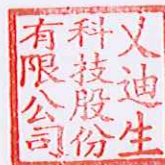 乂迪生
科技股份
有限公司